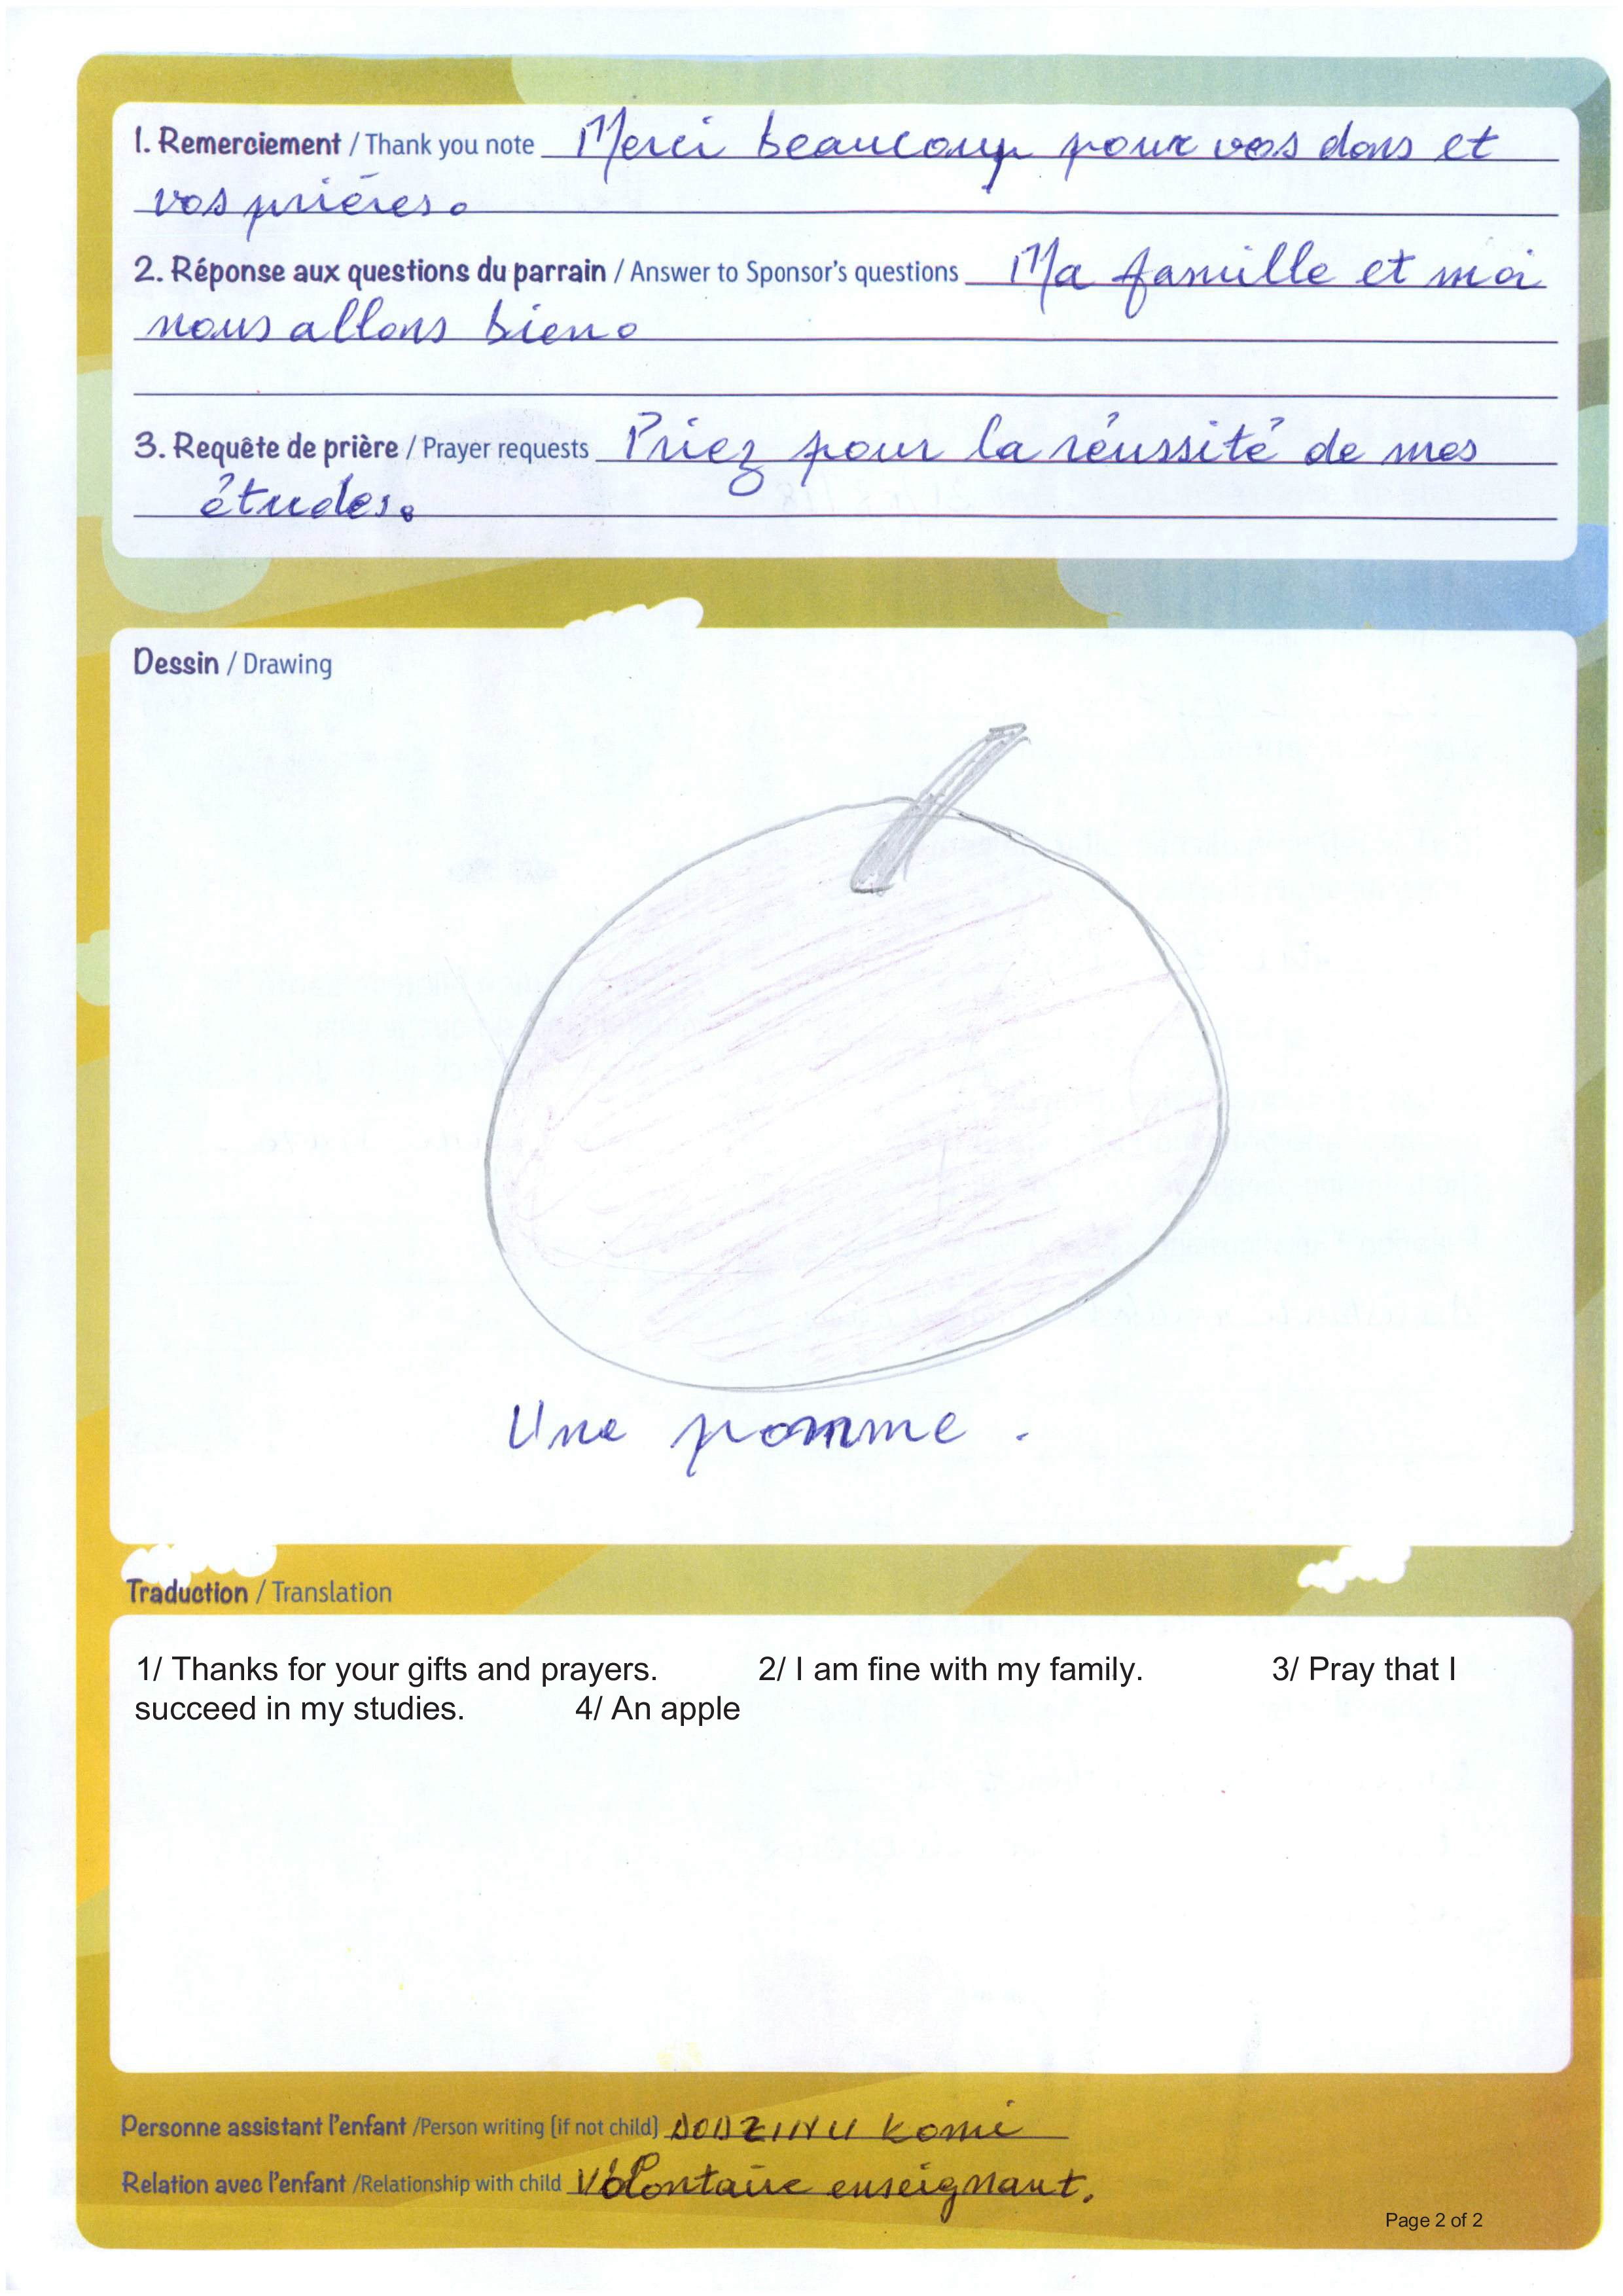 1. Remerciement / Thank you note Merci beaucoup pour vos dons et
vos prières.
2. Réponse aux questions du parrain / Answer to Sponsor's questions Ma famille et moi
nous allons bien.
3. Requête de prière / Prayer requests Priez pour la réussité de mes
études.
Dessin / Drawing
Une pomme.
Traduction / Translation
1/ Thanks for your gifts and prayers. 2/ I am fine with my family. 3/ Pray that I
succeed in my studies. 4/ An apple
Personne assistant l'enfant /Person writing (if not child) DODZINU Komi
Relation avec l'enfant /Relationship with child Volontaire enseignant.
Page 2 of 2